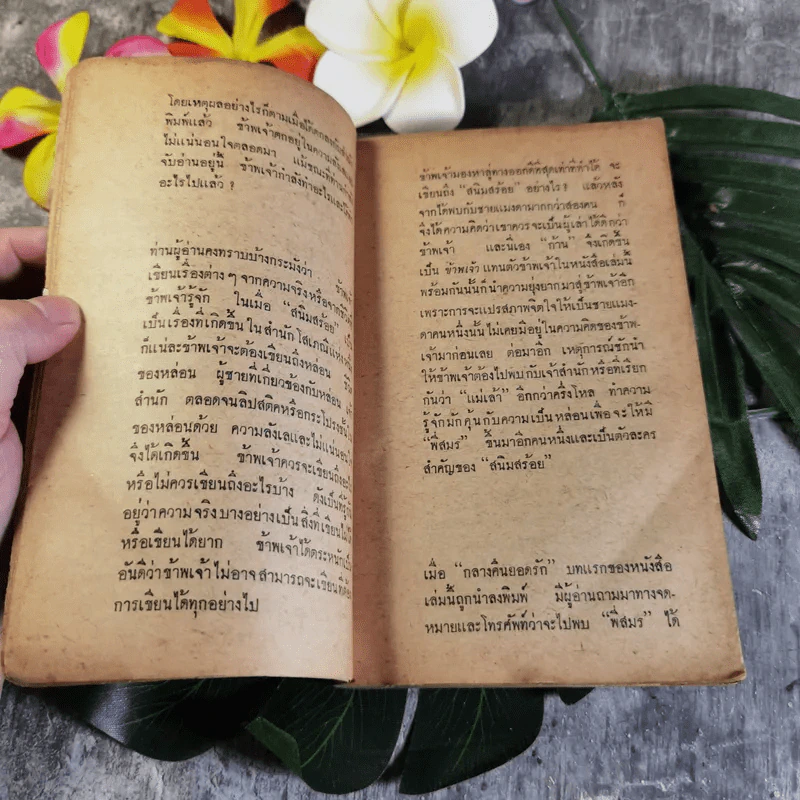 โดยเหตุผลอย่างไรก็ตามเมื่อได้ตกลง
พิมพ์แล้ว ข้าพเจ้าตกอยู่ในความ
ไม่แน่นอนใจตลอดมา แม้ขณะที่ท่าน
จับอ่านอยู่นี้ ข้าพเจ้ากำลังทำอะไรและ
อะไรไปแล้ว ?
ท่านผู้อ่านคงทราบบ้างกระมังว่า
เขียนเรื่องต่าง ๆ จากความจริง หรือจาก
ข้าพเจ้ารู้จัก ในเมื่อ “สนิมสร้อย”
เป็นเรื่องที่เกิดขึ้น ในสำนักโสเภณีแห่ง
ก็แน่ละข้าพเจ้าจะต้องเขียนถึงหล่อน
ของหล่อน ผู้ชายที่เกี่ยวข้องกับหล่อน
สำนัก ตลอดจนลิปสติคหรือกระโปรง
ของหล่อนด้วย ความลังเลและไม่แน่นอน
จึงได้เกิดขึ้น ข้าพเจ้าควรจะเขียนถึง
หรือไม่ควรเขียนถึงอะไรบ้าง ดังเป็นที่รู้
อยู่ว่าความจริงบางอย่างเป็นสิ่งที่เขียน
หรือเขียนได้ยาก ข้าพเจ้าได้ตระหนัก
อันดีว่าข้าพเจ้าไม่อาจสามารถจะเขียน
การเขียนได้ทุกอย่างไป
ข้าพเจ้ามองหาลู่ทางออกที่ดีที่สุดเท่าที่ทำได้ จะ
เขียนถึง “สนิมสร้อย” อย่างไร ? แล้วหลัง
จากได้พบกับชายแมงดามากกว่าสองคน ก็
จึงได้ความคิดว่าเขาควรจะเป็นผู้เล่าได้ดีกว่า
ข้าพเจ้า และนี่เอง “ก้าน” จึงเกิดขึ้น
เป็น ข้าพเจ้า แทนตัวข้าพเจ้าในหนังสือเล่มนี้
พร้อมกันนั้นก็นำความยุ่งยากมาสู่ข้าพเจ้าอีก
เพราะการจะแปรสภาพจิตใจให้เป็นชายแมง-
ดาคนหนึ่งนั้น ไม่เคยมีอยู่ในความคิดของข้าพ-
เจ้ามาก่อนเลย ต่อมาอีก เหตุการณ์ชักนำ
ให้ข้าพเจ้าต้องไปพบกับเจ้าสำนักหรือที่เรียก
กันว่า “แม่เล้า” อีกกว่าครึ่งโหล ทำความ
รู้จักมักคุ้นกับความเป็นหล่อนเพื่อจะให้มี
“พี่สมร” ขึ้นมาอีกคนหนึ่งและเป็นตัวละคร
สำคัญของ “สนิมสร้อย”
เมื่อ “กลางคืนยอดรัก” บทแรกของหนังสือ
เล่มนี้ถูกนำลงพิมพ์ มีผู้อ่านถามมาทางจด-
หมายและโทรศัพท์ว่าจะไปพบ “พี่สมร” ได้